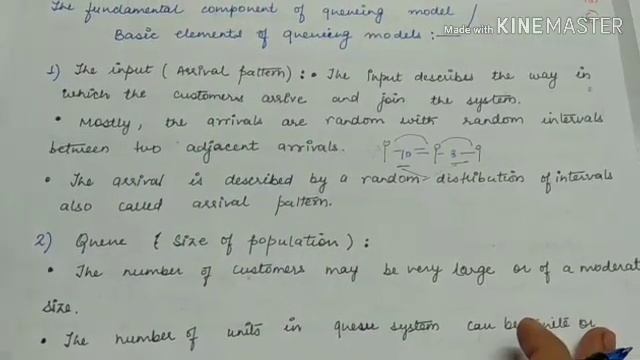 The fundamental component of queueing model /
Made with KINEMASTER
Basic elements of queueing models :
1) The input ( Arrival pattern) : • The input describes the way in
which the customers arrive and join the system.
• Mostly, the arrivals are random with random intervals
between two adjacent arrivals.
10 = 3
• The arrival is described by a random distribution of intervals
also called arrival pattern.
2) Queue ( Size of population ) :
• The number of customers may be very large or of a moderat
size.
• The number of units in queue system can be or